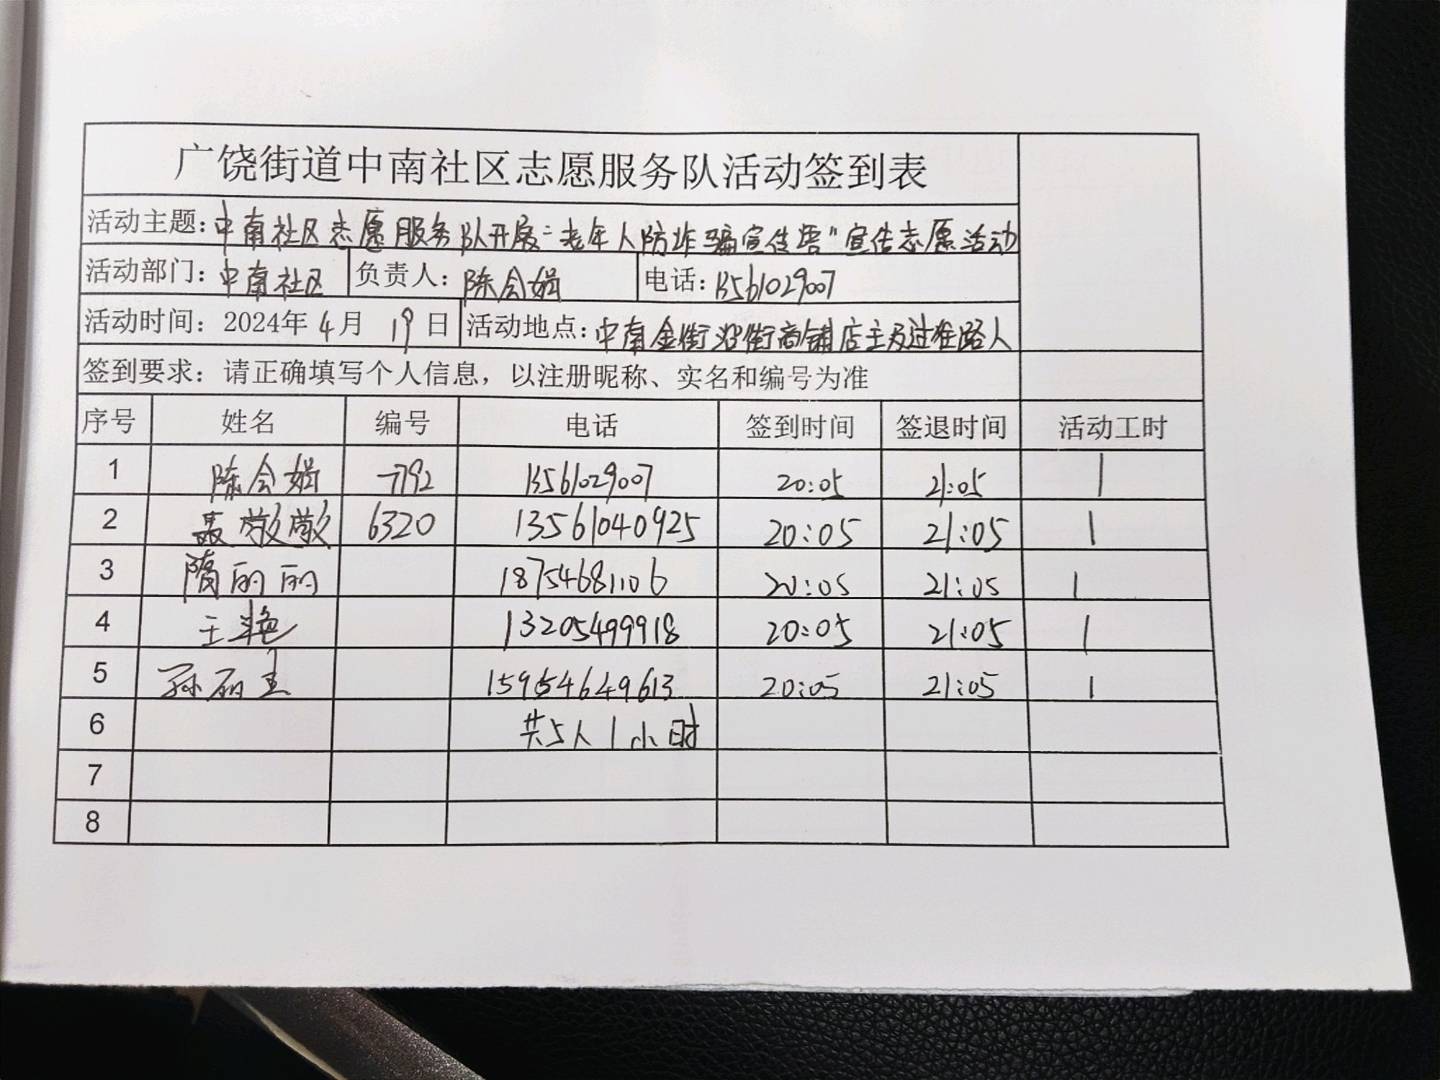 广饶街道中南社区志愿服务队活动签到表
活动主题：中南社区志愿服务队开展"老年人防诈骗宣传语"宣传志愿活动
活动部门：中南社区 负责人：陈会娟 电话：13561029007
活动时间：2024年4月19日 活动地点：中南金街沿街商铺店主及过往路人
签到要求：请正确填写个人信息，以注册昵称、实名和编号为准
序号 姓名 编号 电话 签到时间 签退时间 活动工时
1 陈会娟 7792 13561029007 20:05 21:05 1
2 聂敬敬 6320 13561040925 20:05 21:05 1
3 隋丽丽 18754681106 20:05 21:05 1
4 王艳 13205499918 20:05 21:05 1
5 孙丽 15954649613 20:05 21:05 1
6 共5人1小时
7
8